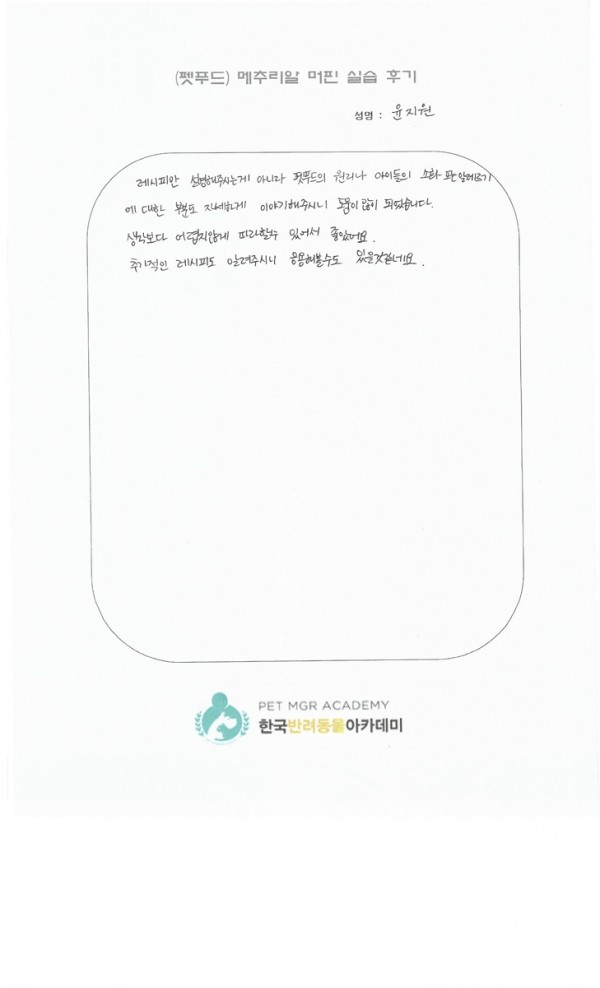 (펫푸드) 메추리알 머핀 실습 후기
성명 : 윤지원
레시피만 설명해주시는게 아니라 펫푸드의 원리나 아이들의 소화
에 대한 부분도 자세하게 이야기해주시니 도움이 많이 되었습니다.
생각보다 어렵지않게 따라할수 있어서 좋았어요.
추가적인 레시피도 알려주시니 응용해볼수도 있을것같네요.
PET MGR ACADEMY
한국반려동물아카데미